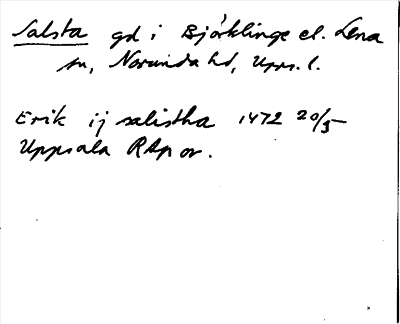 Salsta gd i Björklinge el. Lena
sn, Norunda hd, Upps. l.
Erik ij salistha 1472 20/5
Uppsala RAp or.